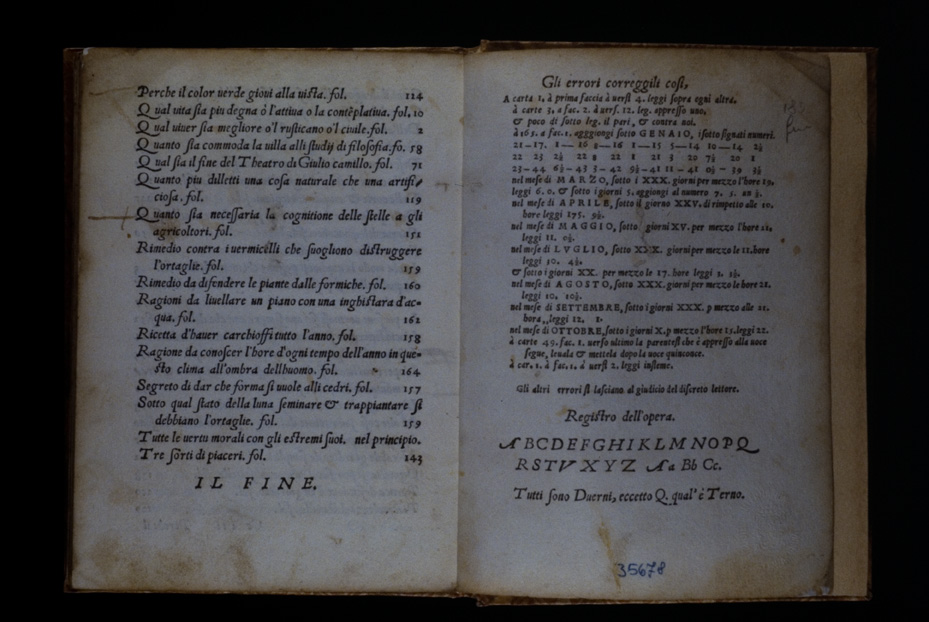 Perche il color uerde gioui alla uista. fol. 114
Qual uita sia piu degna ò l'attiua o la contẽplatiua. fol. 10
Qual uiuer sia megliore o'l rusticano o'l ciuile. fol. 2
Quanto sia commoda la uilla alli studij di filosofia. fo. 58
Qual sia il fine del Theatro di Giulio camillo. fol. 71
Quanto piu dilletti una cosa naturale che una artifi-
ciosa. fol. 119
Quanto sia necessaria la cognitione delle stelle a gli
agricoltori. fol. 151
Rimedio contra i uermicelli che suogliono distruggere
l'ortaglie. fol. 159
Rimedio da difendere le piante dalle formiche. fol. 160
Ragioni da liuellare un piano con una inghistara d'ac-
qua. fol. 162
Ricetta d'hauer carchioffi tutto l'anno. fol. 158
Ragione da conoscer l'hore d'ogni tempo dell'anno in que-
sto clima all'ombra dell'huomo. fol. 164
Segreto di dar che forma si uuole alli cedri. fol. 157
Sotto qual stato della luna seminare & trappiantare si
debbiano l'ortaglie. fol. 159
Tutte le uertu morali con gli estremi suoi. nel principio.
Tre sorti di piaceri. fol. 143
IL FINE.
Gli errori correggili così,
A carta 1. à prima faccia à uersi 4. leggi sopra ogni altra.
à carte 3. a fac. 2. à uers. 12. leg. appresso uno.
& poco di sotto leg. il pari, & contra noi.
à 165. a fac. 1. agggiongi sotto GENAIO, i sotto signati numeri.
nel mese di MARZO, sotto i XXX. giorni per mezzo l'hore 19.
leggi 6. 0. & sotto i giorni 5. aggiongi al numero 7. 5. un ½.
nel mese di APRILE, sotto il giorno XXV. di rimpetto alle 10.
hore leggi 175. 9½.
nel mese di MAGGIO, sotto giorni XV. per mezzo l'hore 21.
leggi 11. 0½.
nel mese di LVGLIO, sotto XXX. giorni per mezzo le 11. hore
leggi 10. 4½.
& sotto i giorni XX. per mezzo le 17. hore leggi 3. 1½.
nel mese di AGOSTO, sotto XXX. giorni per mezzo le hore 21.
leggi 10. 10½.
nel mese di SETTEMBRE, sotto i giorni XXX. p mezzo alle 21.
hora, leggi 12. 1.
nel mese di OTTOBRE, sotto i giorni X. p mezzo l'hore 15. leggi 22.
à carte 49. fac. 1. uerso ultimo la parentesi che è appresso alla uoce
segue, leuala & mettela dopo la uoce quinconce.
à car. 1. à fac. 1. à uersi 2. leggi insieme.
Gli altri errori si lasciano al giudicio del discreto lettore.
Registro dell'opera.
ABCDEFGHIKLMNOPQ
RSTVXYZ Aa Bb Cc.
Tutti sono Duerni, eccetto Q. qual' è Terno.
35678